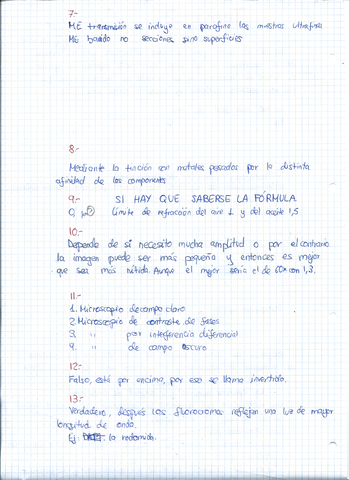 7.-
ME transmisión se incluye en parafina las muestras ultrafinas
ME barrido no secciones sino superficies
8.-
Mediante la tinción con metales pesados por la distinta
afinidad de los components
9.-
SI HAY QUE SABERSE LA FÓRMULA
Límite de refracción del aire 1 y del aceite 1,5
10.-
Depende de si necesito mucha amplitud o por el contrario
la imagen puede ser más pequeña y entonces es mejor
que sea más nítida. Aunque el mejor sería el de 60x con 1,3.
11.-
1. Microscopio de campo claro
2. Microscopio de contraste de fases
3. " por interferencia diferencial
4. " de campo oscuro
12.-
Falso, está por encima, por eso se llama invertido.
13.-
Verdadero, después los fluorocromos reflejan una luz de mayor
longitud de onda.
Ej: la rodamida.